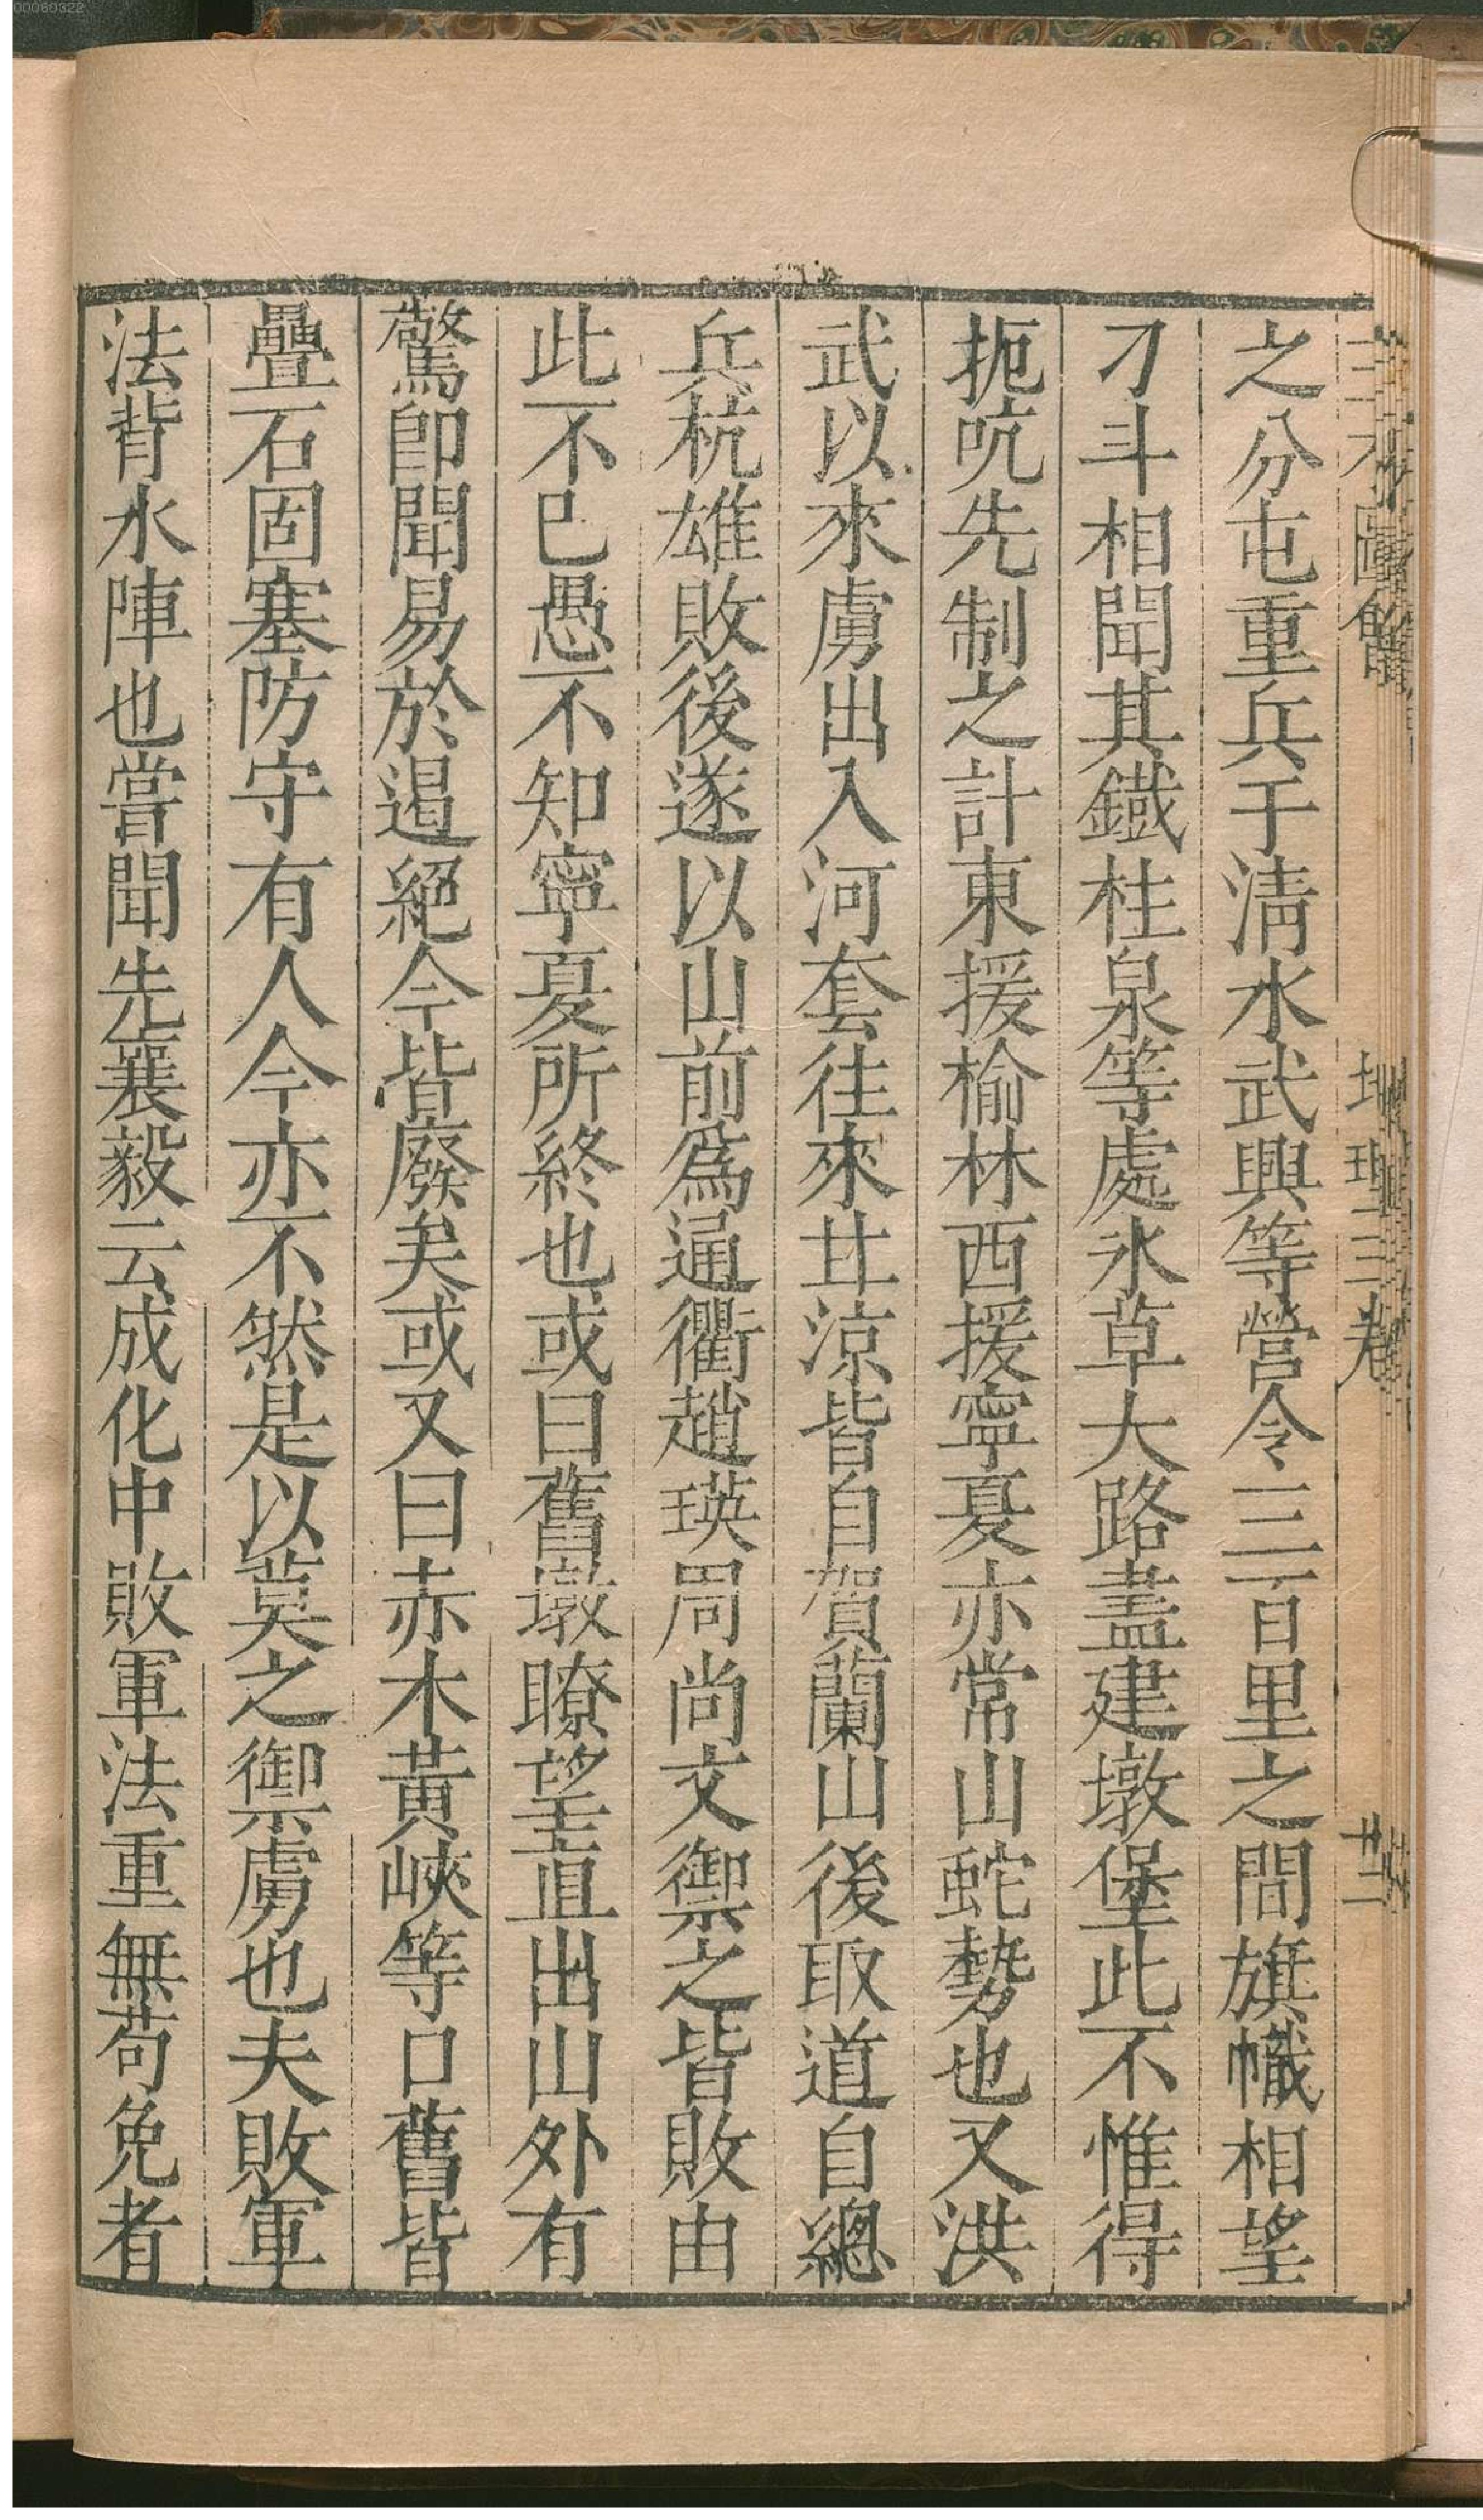 00080322
三才圖會 地理三卷 十二
之分屯重兵于清水武興等營令三百里之間旗幟相望
刁斗相聞其鐵柱泉等處水草大路盡建墩堡此不惟得
扼吭先制之計東援榆林西援寧夏亦常山蛇勢也又洪
武以來虜出入河套往來甘涼皆自賀蘭山後取道自總
兵杭雄敗後遂以山前爲通衢趙瑛周尚文禦之皆敗由
此不已愚不知寧夏所終也或曰舊墩瞭望直出山外有
驚卽聞易於遏絕今皆廢矣或又曰赤木黃峽等口舊皆
疊石固塞防守有人今亦不然是以莫之禦虜也夫敗軍
法背水陣也嘗聞先襄毅云成化中敗軍法重無苟免者